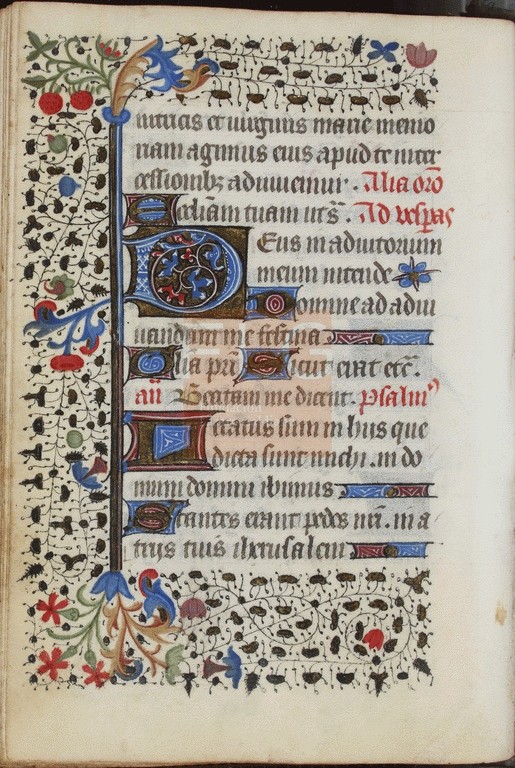 nitricis et virginis marie memo
riam agimus eius apud te inter
cessionib₃ adiuuemur. Alia oro
Ecliam tuam ut s̄. Ad vesp̄as
Deus in adiutorium
meum intende
Domine ad adiu
uandum me festina
Glia pr̄i Sicut erat etc̄.
an̄ Beatam me dicent. Psalm⁹
Letatus sum in hus que
dicta sunt michi. in do
mum domini ibimus
Stantes erant pedes nr̄i. in a
trijs tuis iherusalem